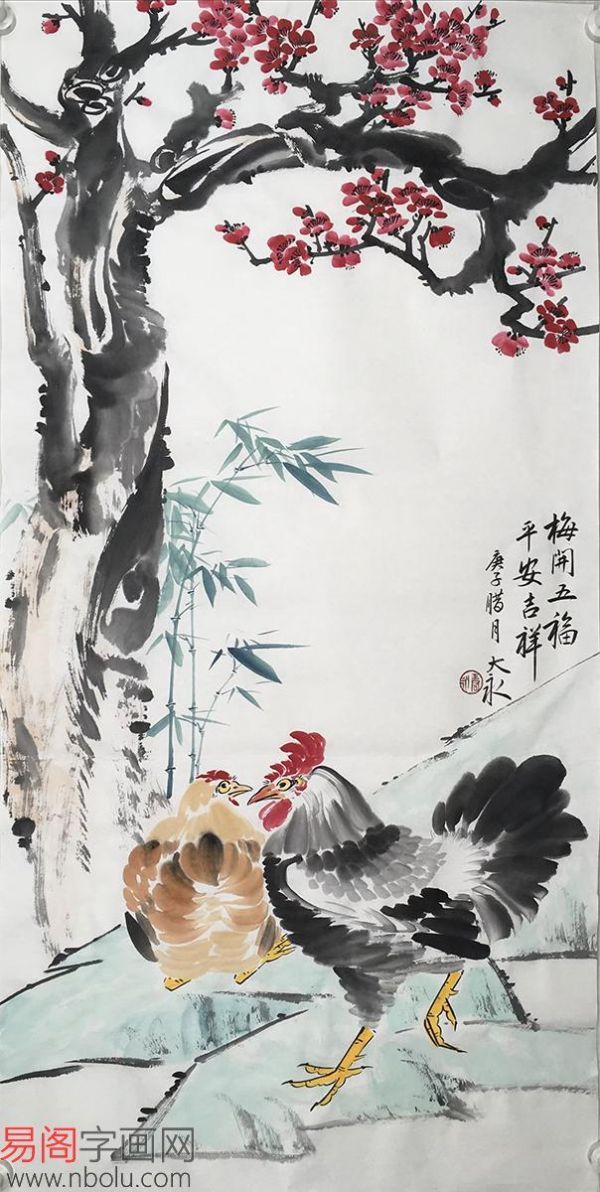 梅開五福
平安吉祥
庚子腊月 大永
易阁字画网
www.nbolu.com